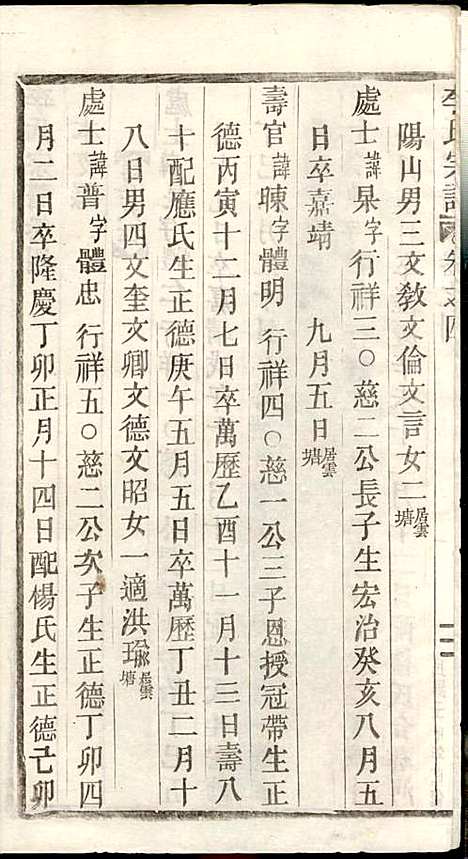 陽山男三文教文倫文言女二居雲塘
處士諱杲字行祥三○慈二公長子生宏治癸亥八月五
日卒嘉靖 九月五日居雲塘
壽官諱暕字體明 行祥四○慈一公三子恩授冠帶生正
德丙寅十二月七日卒萬歷乙酉十一月十三日壽八
十配應氏生正德庚午五月五日卒萬歷丁丑二月十
八日男四文奎文卿文德文昭女一適洪瑜居雲塘
處士諱普字體忠 行祥五○慈二公次子生正德丁卯四
月二日卒隆慶丁卯正月十四日配楊氏生正德己卯